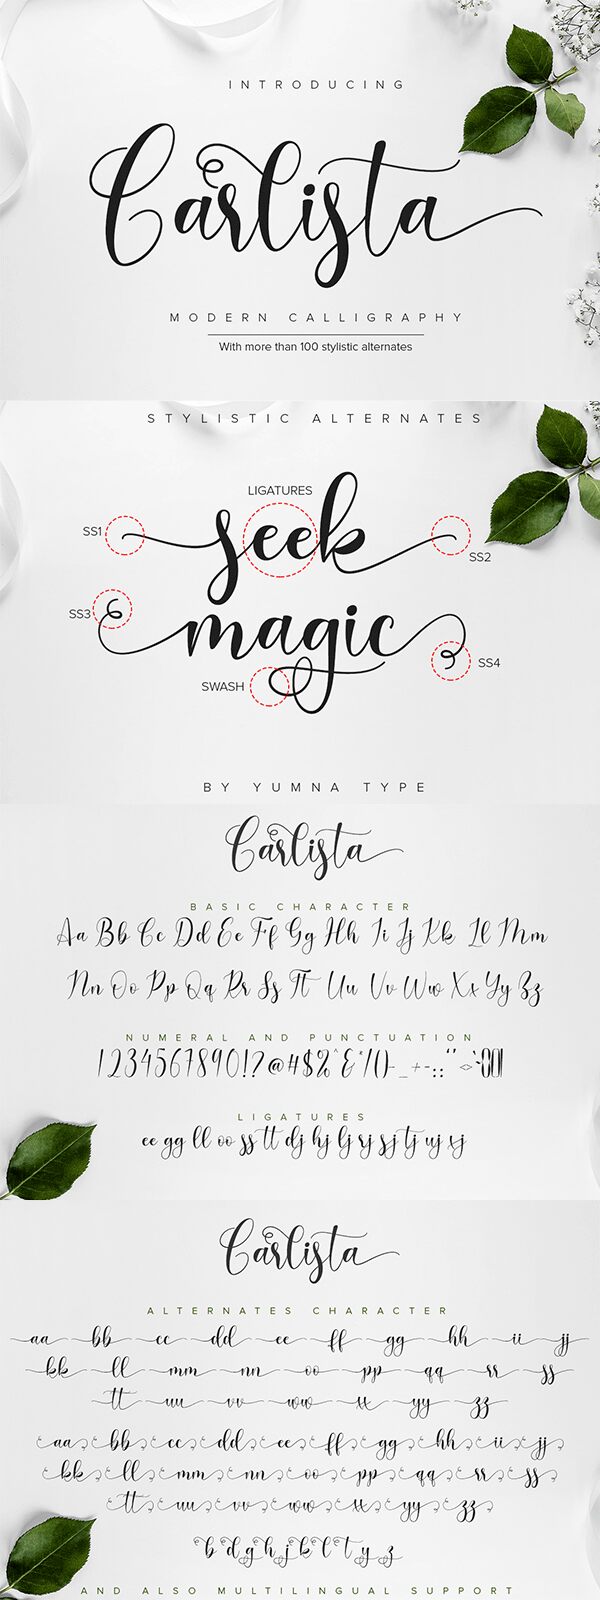 INTRODUCING
Carlista
MODERN CALLIGRAPHY
With more than 100 stylistic alternates
STYLISTIC ALTERNATES
LIGATURES
SS1
seek
SS2
SS3
magic
SS4
SWASH
BY YUMNA TYPE
Carlista
BASIC CHARACTER
Aa Bb Cc Dd Ee Ff Gg Hh Ii Jj Kk Ll Mm
Nn Oo Pp Qq Rr Ss Tt Uu Vv Ww Xx Yy Zz
NUMERAL AND PUNCTUATION
1234567890!?@#$%^&*/()-_+-:;'"<>`~{}[]
LIGATURES
ee gg ll oo ss tt dj hj lj rj sj tj uj xj
Carlista
ALTERNATES CHARACTER
aa bb cc dd ee ff gg hh ii jj
kk ll mm nn oo pp qq rr ss
tt uu vv ww xx yy zz
aa bb cc dd ee ff gg hh ii jj
kk ll mm nn oo pp qq rr ss
tt uu vv ww xx yy zz
b d g h j k l t y z
AND ALSO MULTILINGUAL SUPPORT